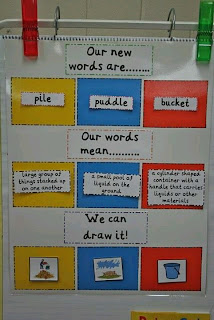 Our new
words are.......
pile
puddle
bucket
Our words
mean..........
large group of
things stacked up
on one another
a small pool of
liquid on the
ground
a cylinder shaped
container with a
handle that carries
liquids or other
materials
We can
draw it!